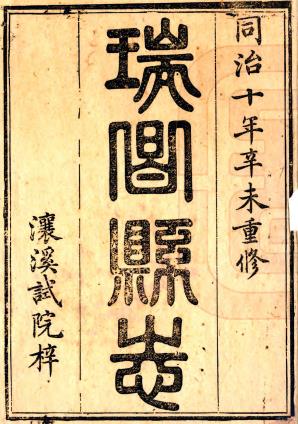 同治十年辛未重修
瑞昌縣志
瀼溪試院梓